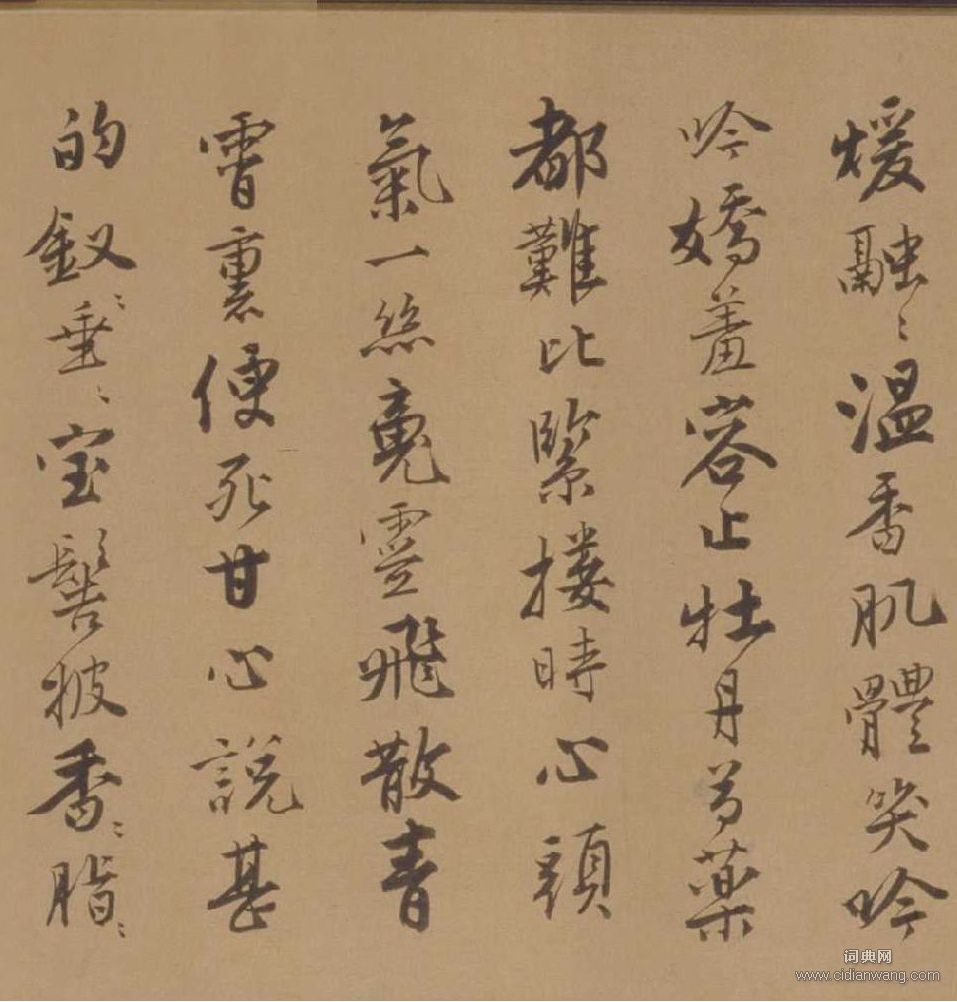 煖融〻温香肌體笑吟
吟嬌羞容止牡丹芍藥
都難比緊摟時心頭
氣一絲竟靈飛散青
霄裏便死甘心說甚
的釵〻垂〻宝髻披香〻脂〻
词典网
www.cidianwang.com